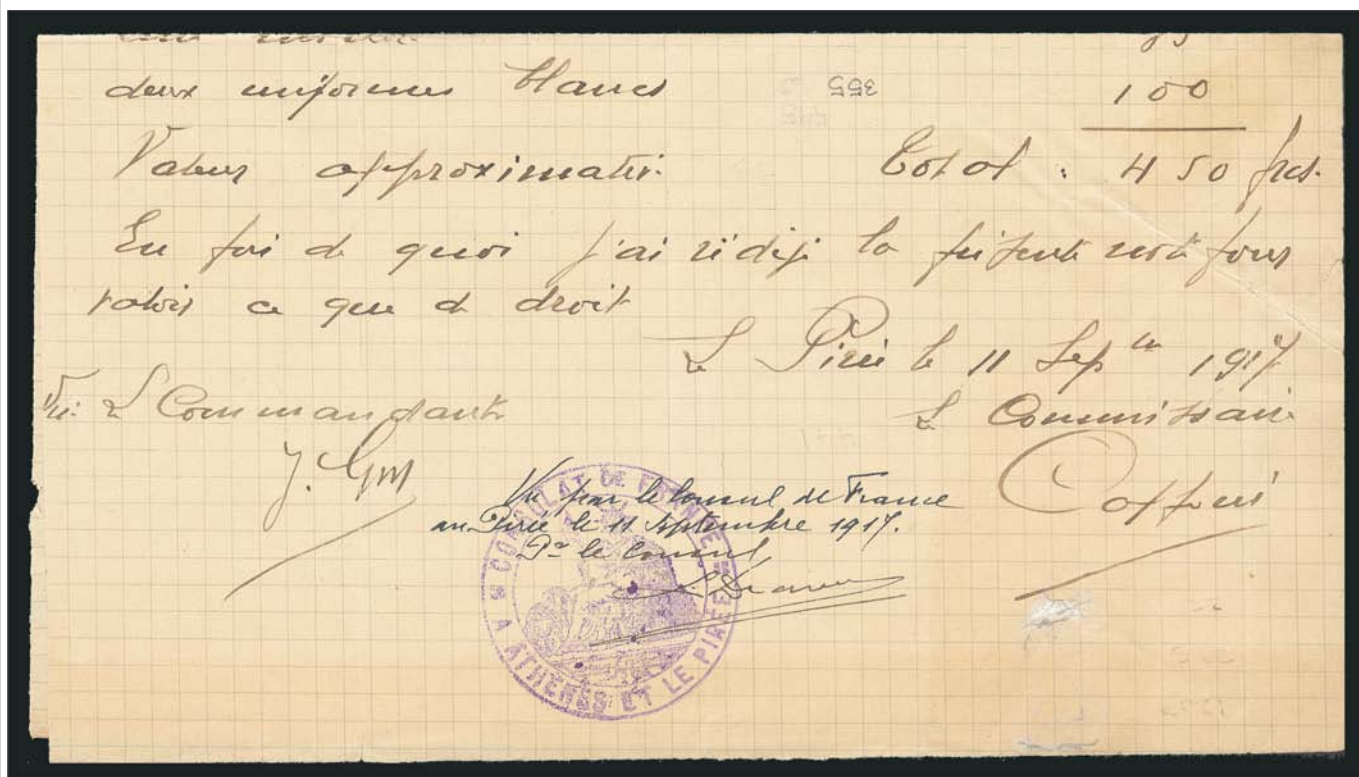 deux uniformes blancs 355 100
Valeur approximative. Total : 450 frcs.
En foi de quoi j'ai rédigé la présente note pour
valoir ce que de droit
Le Pirée le 11 Sepbre 1917
Vu: Le Commandant Le Commissaire
Vu pour le Consul de France
au Pirée le 11 Septembre 1917.
Pr le Consul,
CONSULAT DE FRANCE
A ATHÈNES ET LE PIRÉE